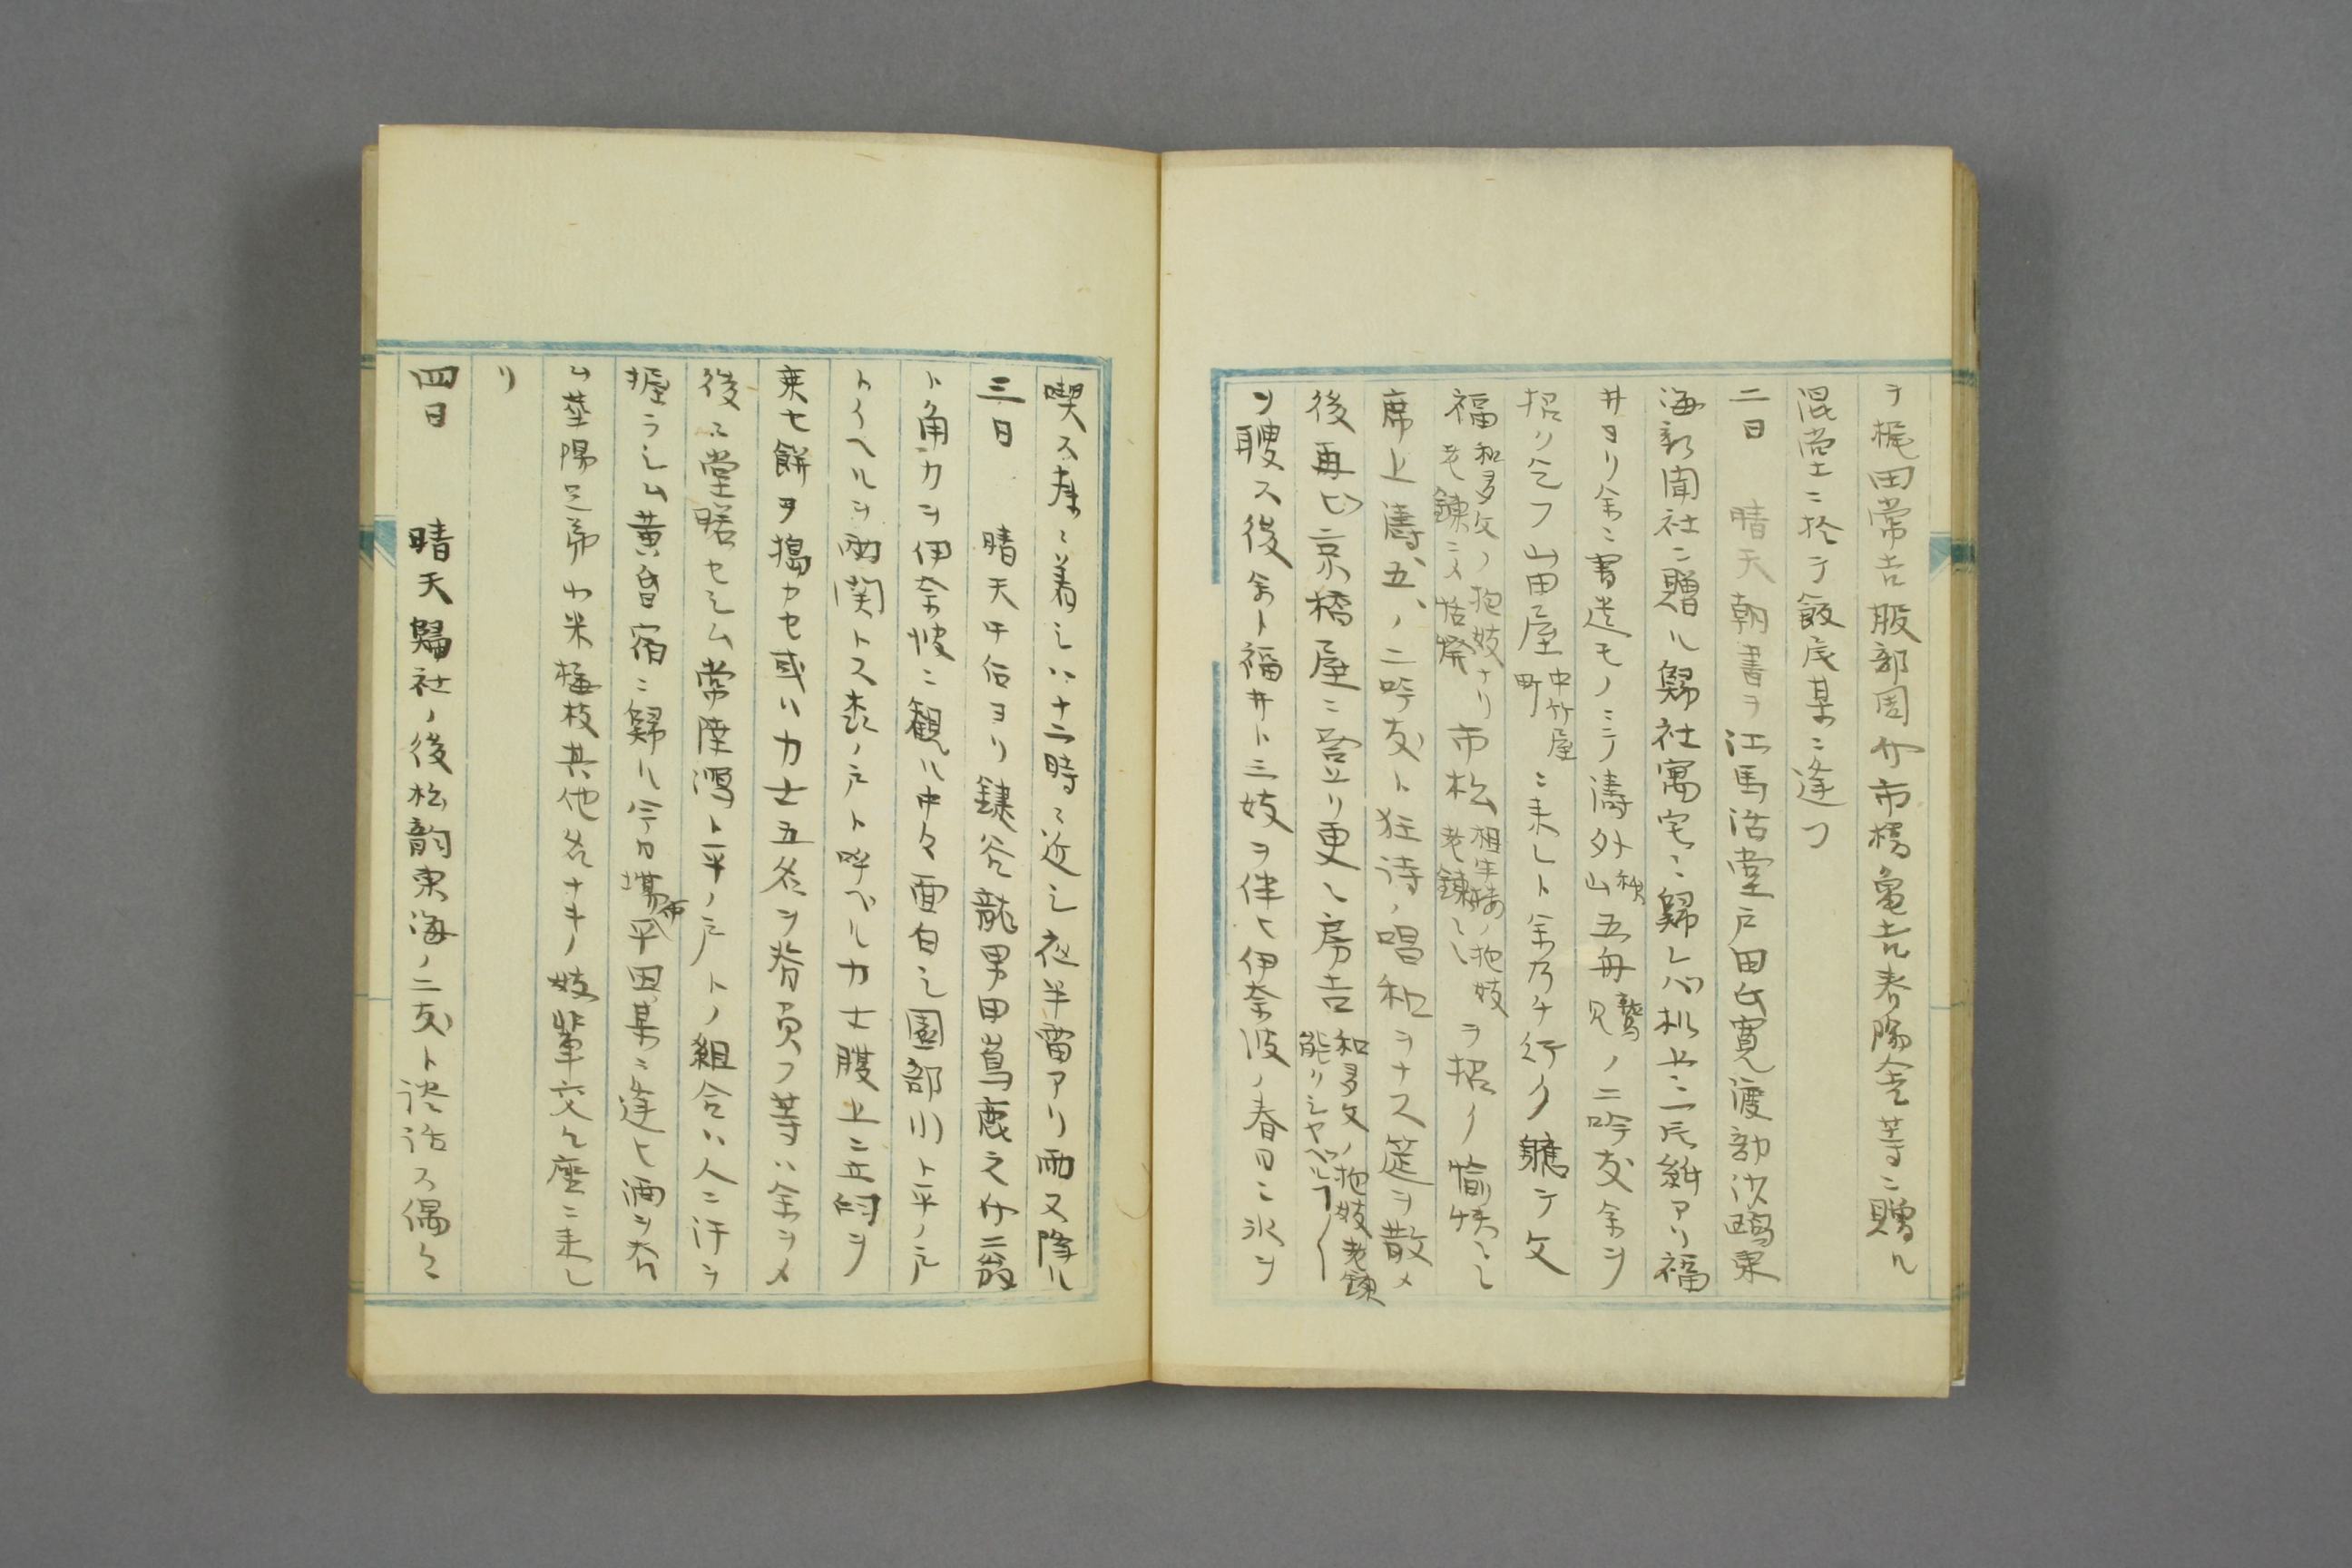 ヲ梶田常吉服部周竹市橋亀吉春陽舎等ニ贈ル
混堂ニ於テ飯尾某ニ逢フ
二日　晴天朝書ヲ江馬活堂戸田氏寛渡部沙鴎東
海新聞社ニ贈ル歸社寓宅ニ歸レハ机上ニ尺牘アリ福
井ヨリ余ニ書送モノニテ濤外秋山五舟鷲見ノ二吟友余ヲ
招リ令フ山田屋中竹屋町ニ来レト余乃チ行ク鑣テ文
福和多文ノ抱妓ナリ老錬ニメ活発市松相生楼ノ抱妓老錬ヲ招ク愉快
席上濤、五、ノ二吟友ト狂詩ノ唱和ヲナス筵ヲ散メ
後再ヒ京橋屋ニ登リ更ニ房吉和多文ノ抱妓老錬能クシヤベル
ヲ聘ス後余ト福井ト三妓ヲ伴ヒ伊奈波ノ春日ニ氷ヲ
喫ス寓ニ着シハ十二時ニ近シ夜半雷アリ雨又降ル
三日　晴天午后ヨリ鍵谷龍男田嶌鹿之介二翁
ト角力ヲ伊奈波ニ観ル中々面白シ園部川ト平ノ戸
トイヘルヲ両関トス ノ戸ト呼ベル力士腹上ニ立臼ヲ
乗セ餅ヲ搗カセ或ハ力士五名ヲ脊負フ等ハ余ヲメ
後ニ堂  セシム常陸潟ト平ノ戸トノ組合ハ人ニ汗ヲ
握ラシム黄昏宿ニ歸ル今日場中平田某ニ逢ヒ酒ヲ
ム 陽  小米梅枝其他名ナキノ妓輩交々座ニ来レ
リ
四日　晴天歸社ノ後松韵東海ノ二友ト談話ス偶々